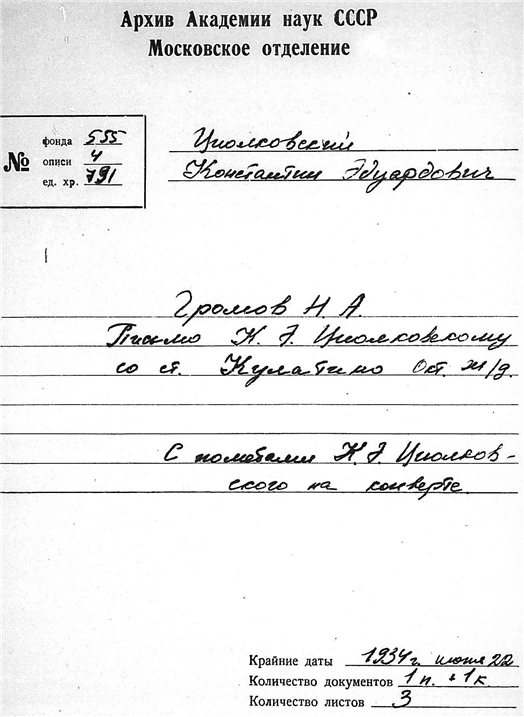 Архив Академии наук СССР
Московское отделение
№
фонда 555
описи 4
ед. хр. 791
Циолковский
Константин Эдуардович
Громов Н. А.
Письмо К. Э. Циолковскому
со ст. Кулатино Окт. ж/д.
С пометами К. Э. Циолков-
ского на конверте.
Крайние даты 1934 г. июня 22
Количество документов 1 п. + 1 к
Количество листов 3